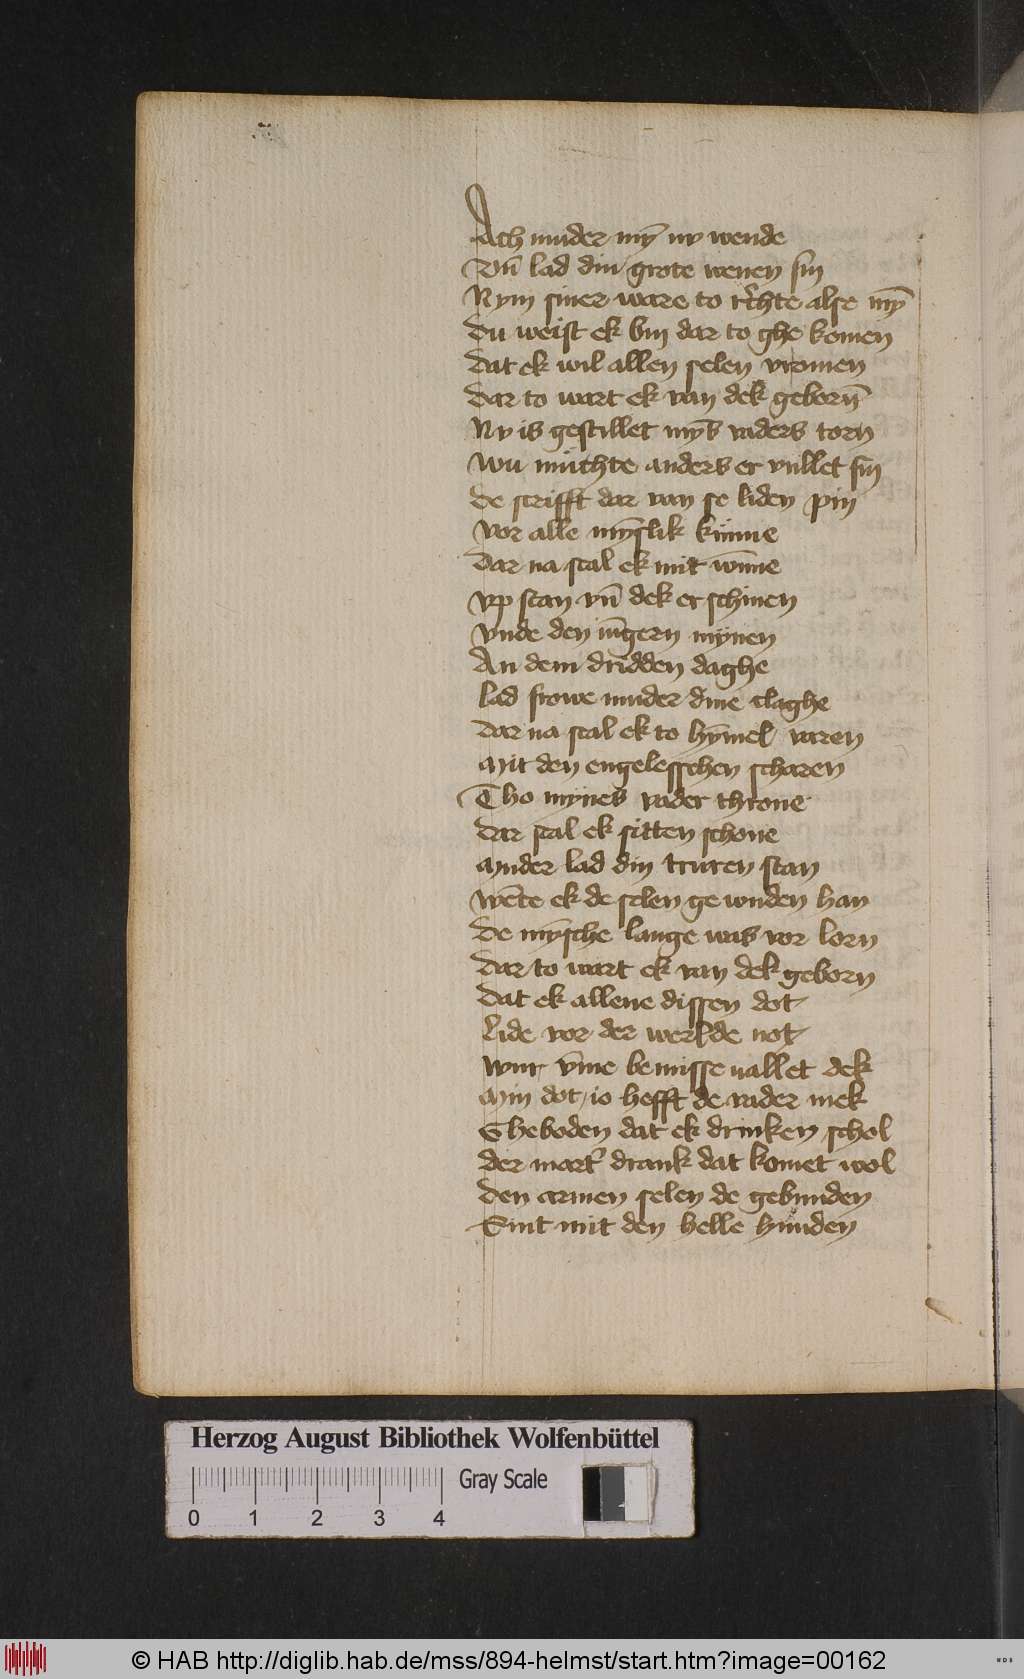 Ach muder mȳ nv wende
Vn̄ lad din grote wenen sin
Nym siner ware to rechte alse mȳ
Du weist ek bin dar to ghe komen
Dat ek wil allen selen vromen
Dar to wart ek van dek geborn̄
Nv is gestillet mȳs vaders torn
Wu muchte anders er vullet sin
De scrifft dar van se liden pin
Vor alle mȳslik kunne
Dar na scal ek mit wūne
Vp stan vn̄ dek er schinen
Vnde den iūgern mynen
An dem dridden daghe
Lad frowe muder dine claghe
Dar na scal ek to hȳmel varen
Mit den engelesschen scharen
Tho mynes vader throne
Dar scal ek sitten schone
Muder lad din truren stan
Wēte ek de selen ge wnden han
De mȳsche lange was vor lorn
Dar to wart ek van dek geborn
Dat ek allene dissen dot
Lide vor der werlde not
Wur v̄me be misse vallet dek
Min dot io hefft de vader mek
Gheboden dat ek drinken schol
Der mart' drank dat komet wol
Den armen selen de gebunden
Sint mit den helle hunden
Herzog August Bibliothek Wolfenbüttel
Gray Scale
0 1 2 3 4
© HAB http://diglib.hab.de/mss/894-helmst/start.htm?image=00162